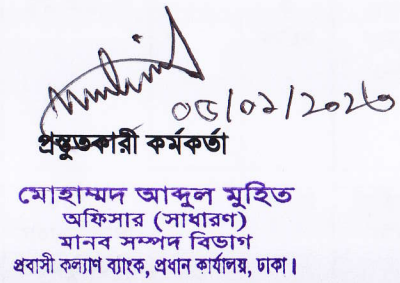 প্রস্তুতকারী কর্মকর্তা
মোহাম্মদ আব্দুল মুহিত
অফিসার (সাধারণ)
মানব সম্পদ বিভাগ
প্রবাসী কল্যাণ ব্যাংক, প্রধান কার্যালয়, ঢাকা।